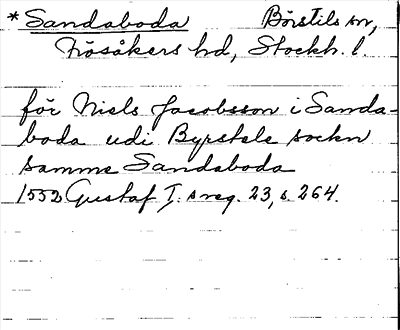 *Sandaboda Börstils sn,
Frösåkers hd, Stockh. l.
för Niels Jacobsson i Sanda-
boda udi Byrstele sockn
samme Sandaboda
1552 Gustaf I. s reg. 23, s. 264.